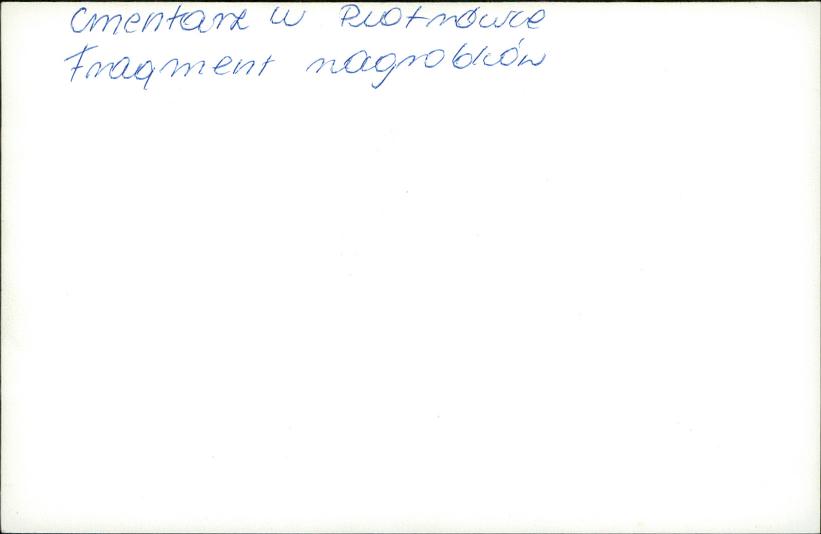 Cmentarz w Piotrówce
Fragment nagrobków